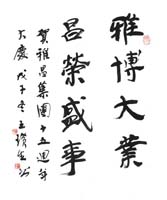 雅博大業
昌榮盛事
賀雅昌集團十五週年
大慶戊子冬王